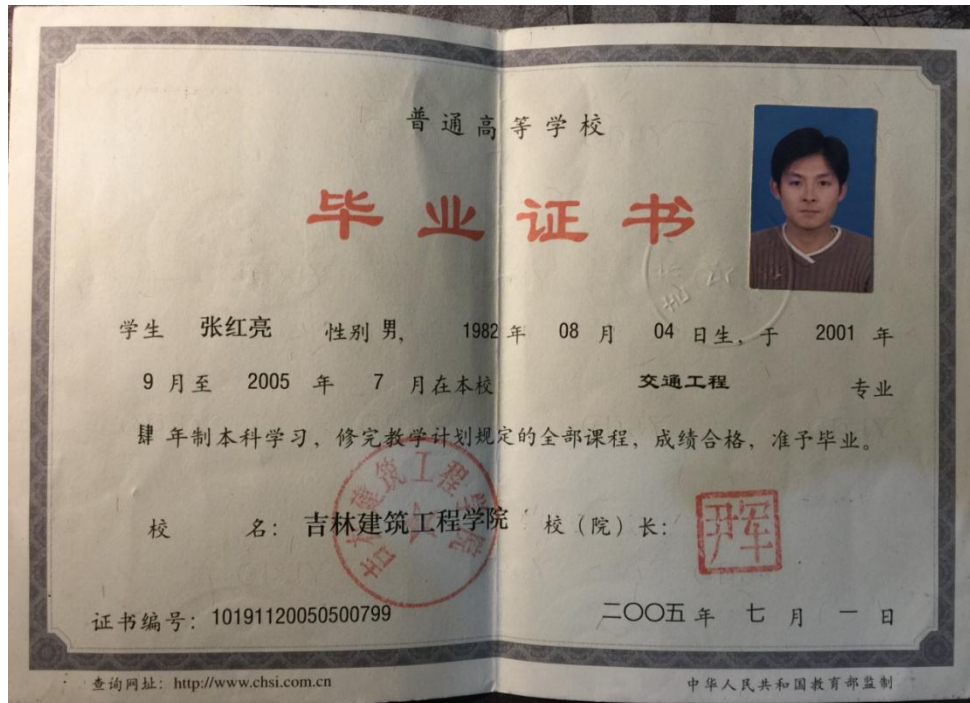 普通高等学校
毕业证书
学生 张红亮 性别 男, 1982 年 08 月 04 日生, 于 2001 年
9 月至 2005 年 7 月在本校 交通工程 专业
肆 年制本科学习, 修完教学计划规定的全部课程, 成绩合格, 准予毕业。
校 名: 吉林建筑工程学院 校（院）长: 尹军
吉林建筑工程学院
证书编号: 10191120050500799 二〇〇五 年 七 月 一 日
查询网址: http://www.chsi.com.cn 中华人民共和国教育部监制